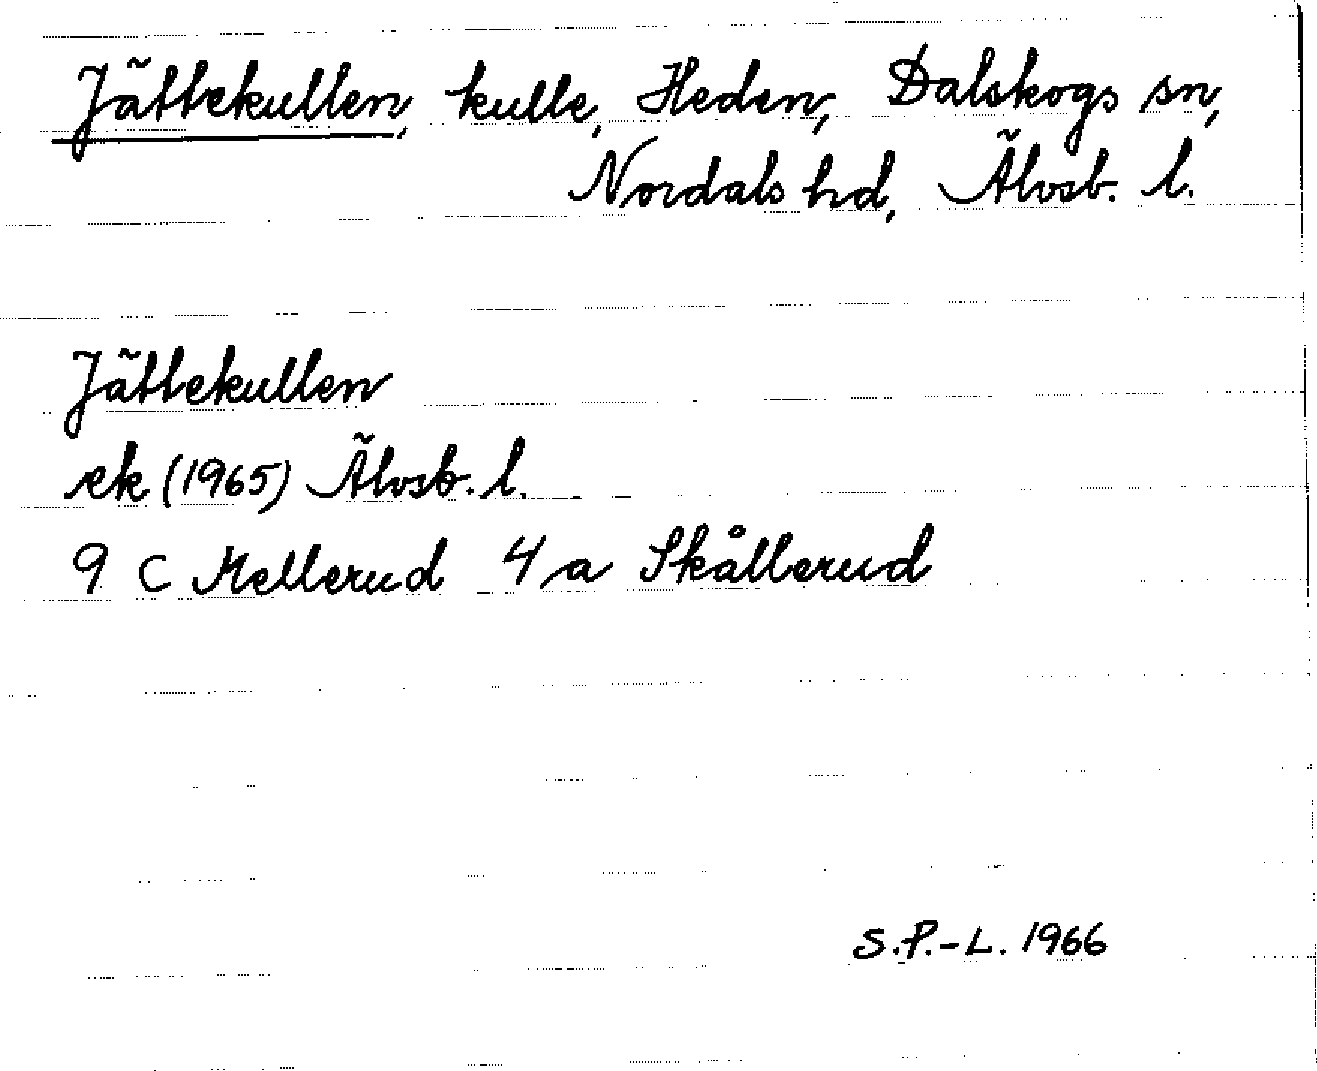 Jättekullen, kulle, Heden, Dalskogs sn,
Nordals hd, Älvsb. l.
Jättekullen
ek (1965) Älvsb. l.
9 C Mellerud 4 a Skållerud
S.P.-L. 1966